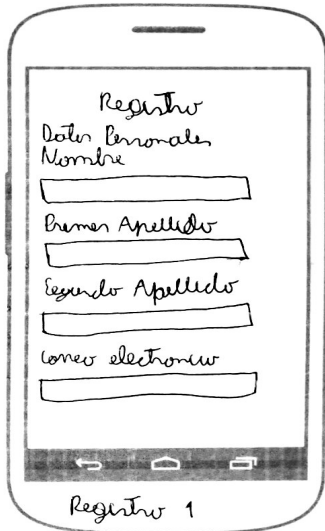 Registro
Datos Personales
Nombre
Primer Apellido
Segundo Apellido
Correo electronico
Registro 1